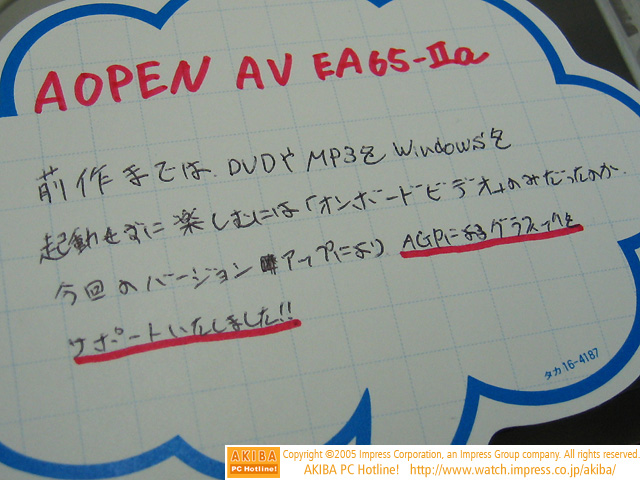 AOPEN AV EA65-IIa
前作までは、DVDや MP3を Windowsを
起動せずに楽しむには「オンボードビデオ」のみだったのが、
今回のバージョンアップにより AGPによるグラフィックを
サポートいたしました!!
タカ 16-4187
AKIBA PC Hotline!
Copyright ©2005 Impress Corporation, an Impress Group company. All rights reserved.
AKIBA PC Hotline! http://www.watch.impress.co.jp/akiba/